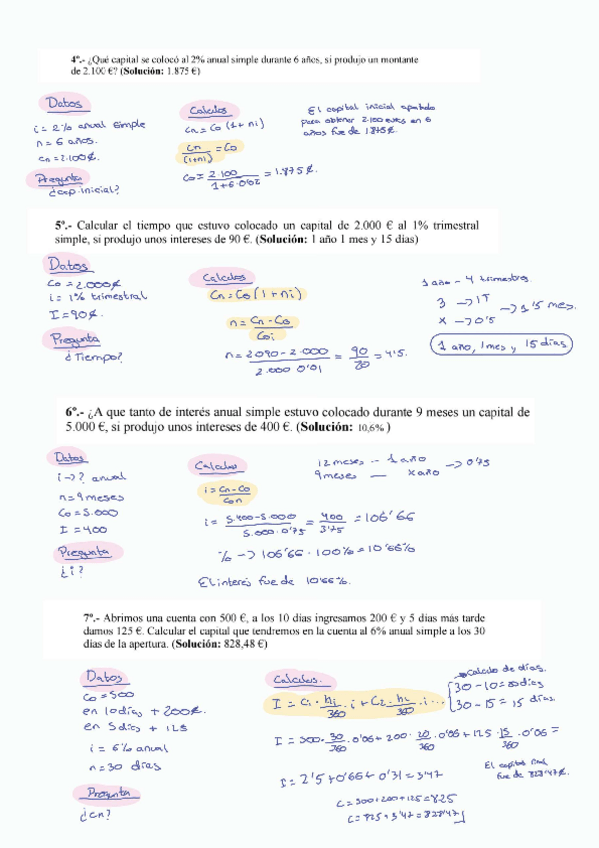 4º.- ¿Qué capital se colocó al 2% anual simple durante 6 años, si produjo un montante
de 2.100 €? (Solución: 1.875 €)
Datos
i = 2% anual simple
n = 6 años.
Cn = 2.100€.
Pregunta
¿cap. inicial?
Calculos
Cn = Co (1 + ni)
Cn/(1+ni) = Co
Co = 2.100/1+6·0'02 = 1.875 €.
El capital inicial aportado
para obtener 2.100 euros en 6
años fue de 1.875€.
5º.- Calcular el tiempo que estuvo colocado un capital de 2.000 € al 1% trimestral
simple, si produjo unos intereses de 90 €. (Solución: 1 año 1 mes y 15 dias)
Datos
Co = 2.000€
i = 1% trimestral
I = 90€.
Pregunta
¿Tiempo?
Calculos
Cn = Co (1 + ni)
n = Cn - Co/Co i
n = 2.090 - 2.000/2.000 0'01 = 90/20 = 4'5.
1 año - 4 trimestres
3 -> 1T
x -> 0'5
-> 1'5 mes.
1 año, 1 mes y 15 dias.
6º.- ¿A que tanto de interés anual simple estuvo colocado durante 9 meses un capital de
5.000 €, si produjo unos intereses de 400 €. (Solución: 10,6% )
Datos
i -> ? anual
n = 9 meses
Co = 5.000
I = 400
Pregunta
¿i?
Calculo
i = Cn - Co/Con
i = 5.400 - 5.000/5.000·0'75 = 400/3'75 = 106'66
% -> 106'66 · 100% = 10'66%
El interés fue de 10'66%.
12 meses - 1 año
9 meses — x año
-> 0'75
7º.- Abrimos una cuenta con 500 €, a los 10 días ingresamos 200 € y 5 días más tarde
damos 125 €. Calcular el capital que tendremos en la cuenta al 6% anual simple a los 30
días de la apertura. (Solución: 828,48 €)
Datos
Co = 500
en 10 días + 200€.
en 5 días + 125
i = 6% anual
n = 30 días
Pregunta
¿Cn?
Calculos.
I = C1 · h1/360 · i + C2 · h2/360 · i ...
Calculo de días.
30 - 10 = 20 días
30 - 15 = 15 días.
I = 500 · 30/360 · 0'06 + 200 · 20/360 · 0'06 + 125 · 15/360 · 0'06 =
I = 2'5 + 0'66 + 0'31 = 3'47
C = 500 + 200 + 125 = 825
C = 825 + 3'47 = 828'47
El capital final
fue de 828'47€.